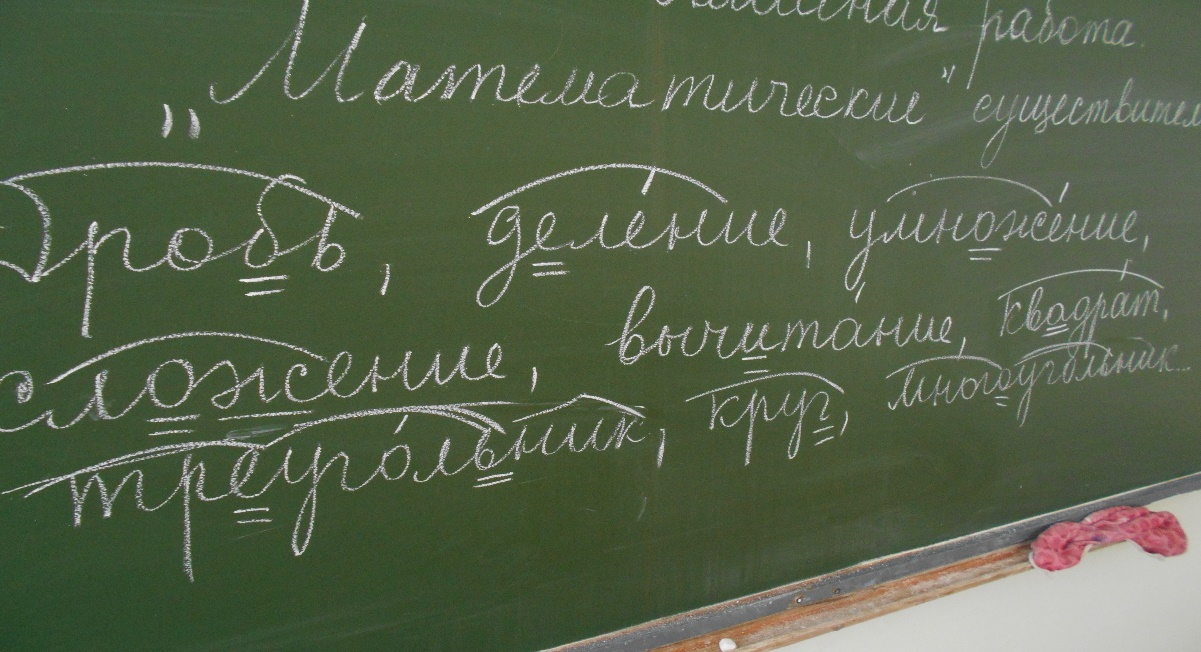 работа.
"Математические" существител
Дробь, деление, умножение,
сложение, вычитание, квадрат,
треугольник, круг, многоугольник...